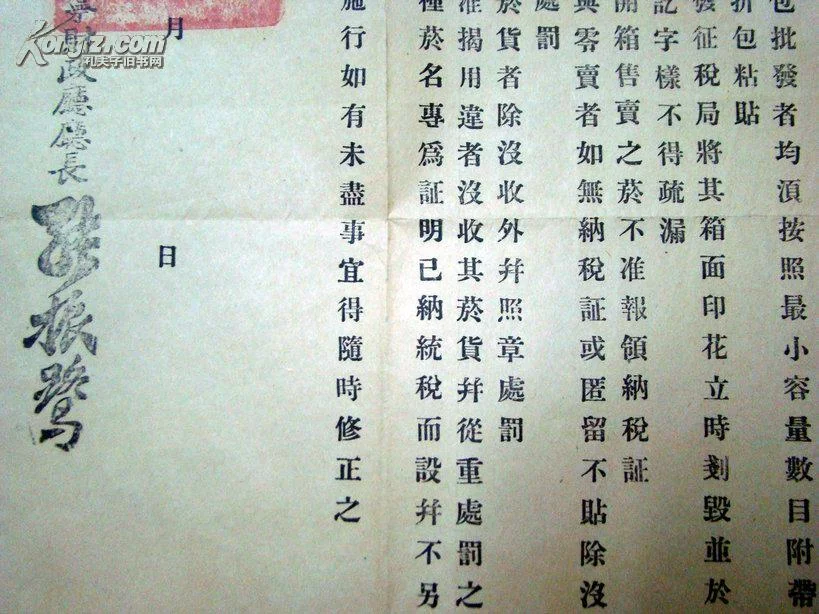 包批發者均須按照最小容量數目附帶
折包粘貼
發征稅局將其箱面印花立時剗毀並於
記字樣不得疏漏
開箱售賣之菸不准報領納稅証
與零賣者如無納稅証或匿留不貼除沒
處罰
於貨者除沒收外幷照章處罰
准揭用違者沒收其菸貨幷從重處罰之
種菸名專爲証明已納統稅而設幷不另
施行如有未盡事宜得隨時修正之
月 日
財政廳廳長 張振鷺
Kongfz.com
孔夫子旧书网